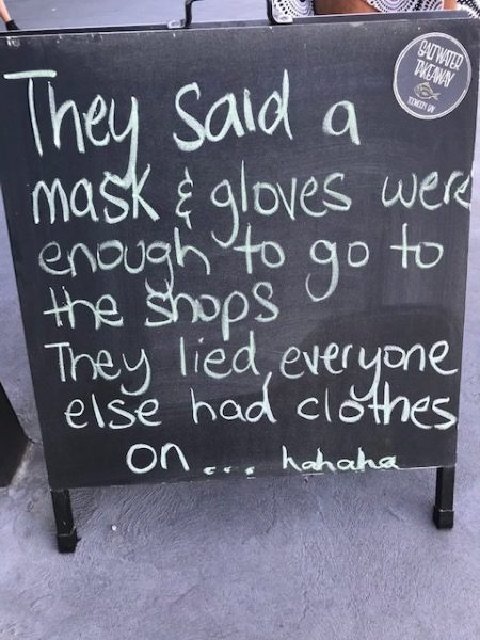 SALTWATER
TAKEAWAY
They said a
mask & gloves were
enough to go to
the shops
They lied, everyone
else had clothes
on ... hahaha